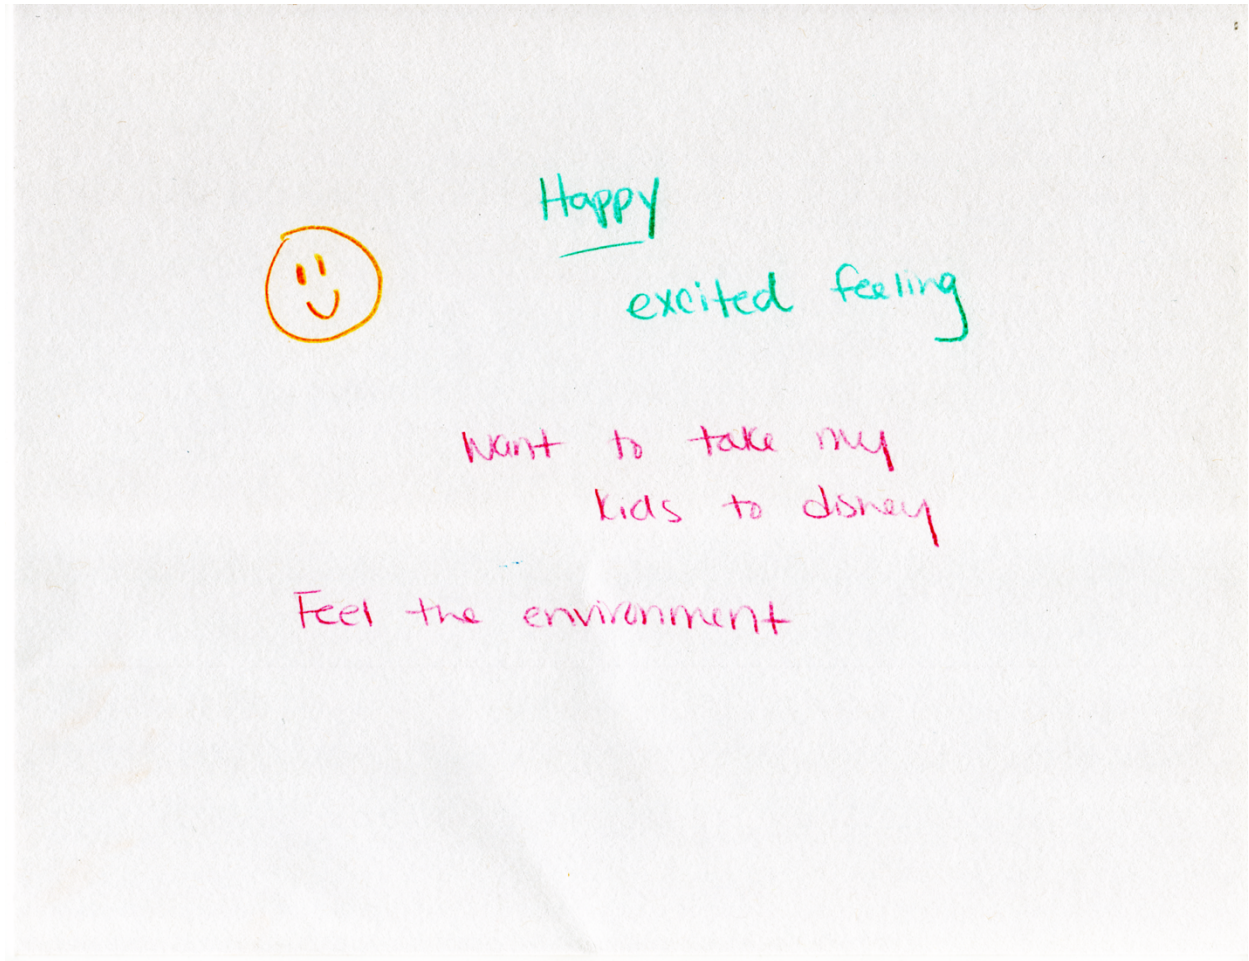 Happy
excited feeling
Want to take my
kids to disney
Feel the environment